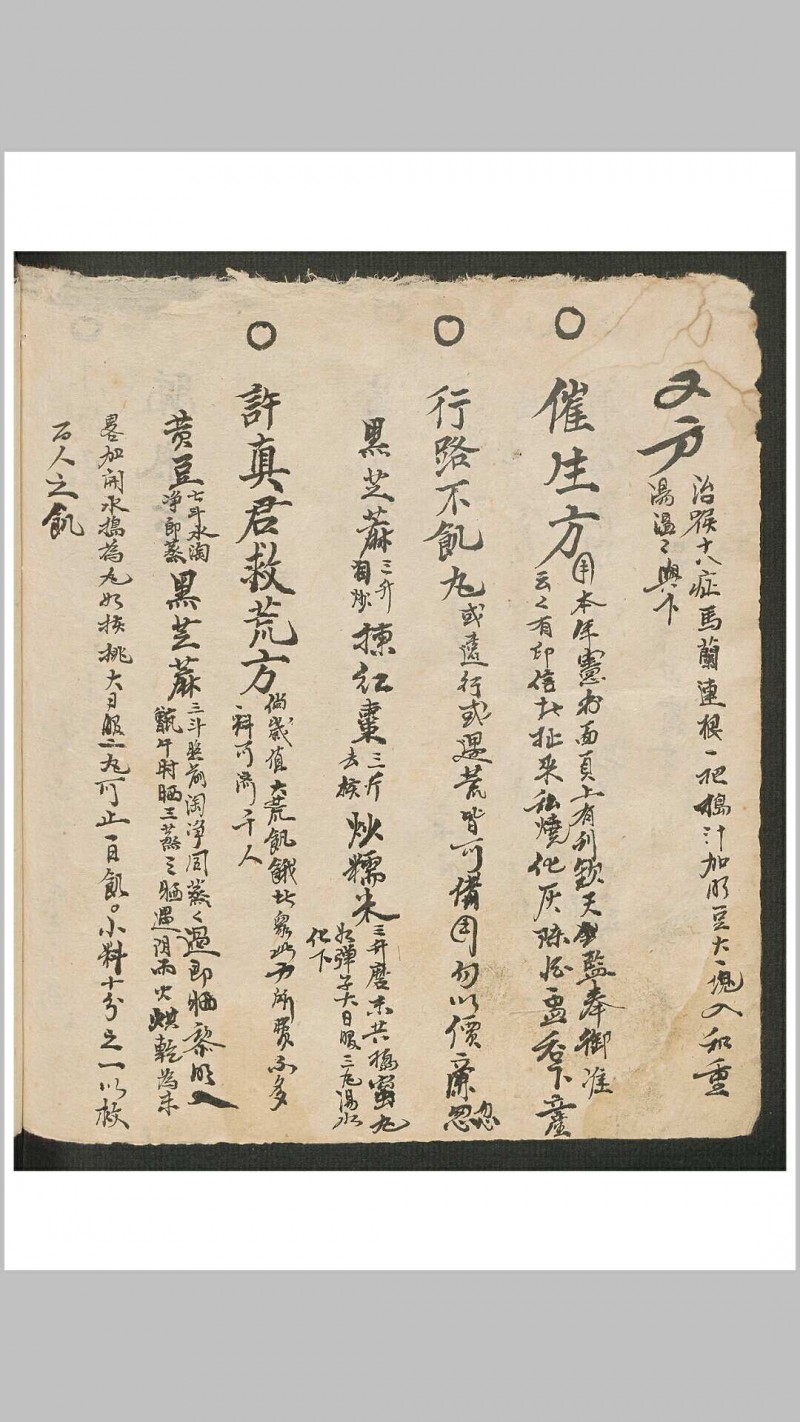 又方
治喉十八症馬蘭連根一把搗汁加豆大一塊入和重
湯溫々與下
催生方
用本年憲书面頁上有刋欽天監奉御准
云々有印信扯來私燒化灰酒盃吞下產
行路不飢丸
或遠行或遇荒皆可備用勿以價廉忽忽
黑芝蔴三升淘炒揀紅棗三斤去核炒糯米三升磨末共搗蜜丸
如彈子大日服三丸湯水
化下
許真君救荒方
倘歲值大荒飢餓此方所費不多
一料可濟千人
黄豆七斗水淘淨即蒸黑芝蔴三斗照前淘淨同蒸々過即晒黎明入
甑午时晒三蒸三晒遇阴雨火烘乾為末
畧加開水搗為丸如核桃大日服二丸可止一日飢。小料十分之一以救
百人之飢